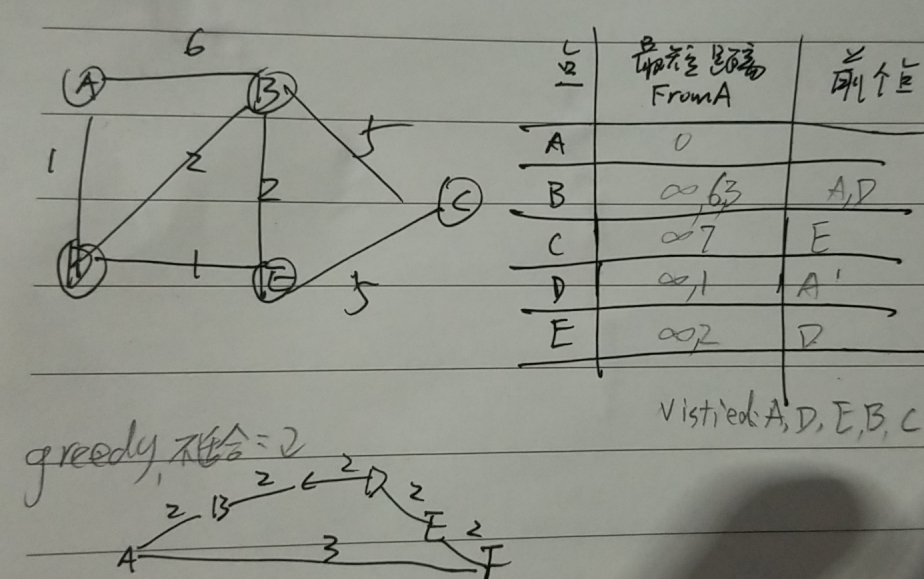 6
A B
1 2 2 5
C
D 1 E
5
点 最短距离 前个点
From A
A 0
B ∞,6,3 A,D
C ∞7 E
D ∞,1 A
E ∞,2 D
Vistied: A, D, E, B, C
greedy,
2 B 2 C 2 D 2
E 2
A 3 F